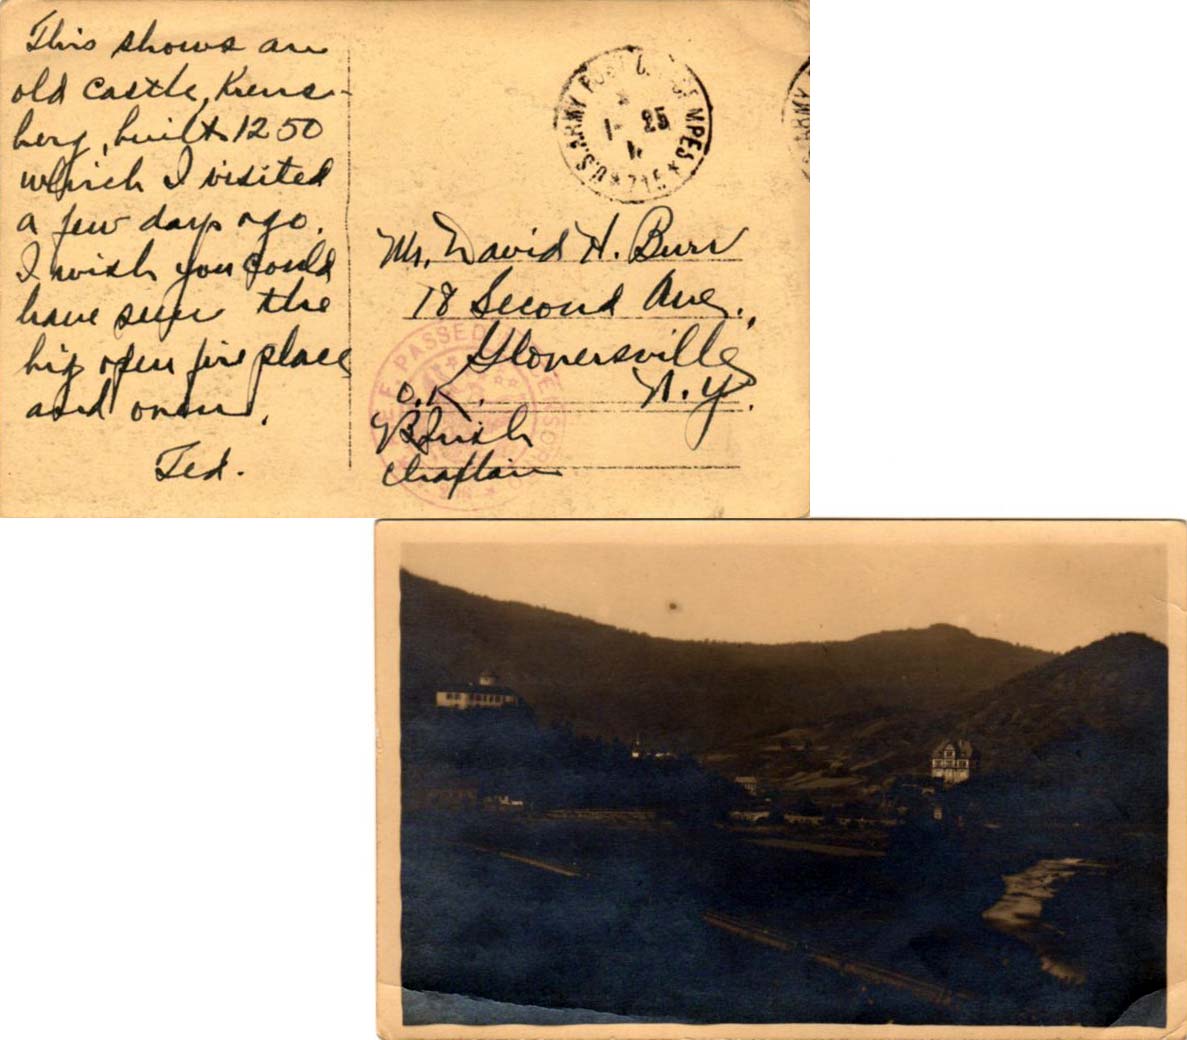 This shows an
old castle, Krens-
berg, built 1250
which I visited
a few days ago.
I wish you could
have seen the
big open fire place
and oven.
Ted.
U.S. ARMY POST OFFICE M.P.E.S.
1- 25
715
ARMY
Mr. David H. Burr
18 Second Ave.,
Gloversville
N.Y.
O.K.
Chaplain
A.E.F. PASSED CENSOR